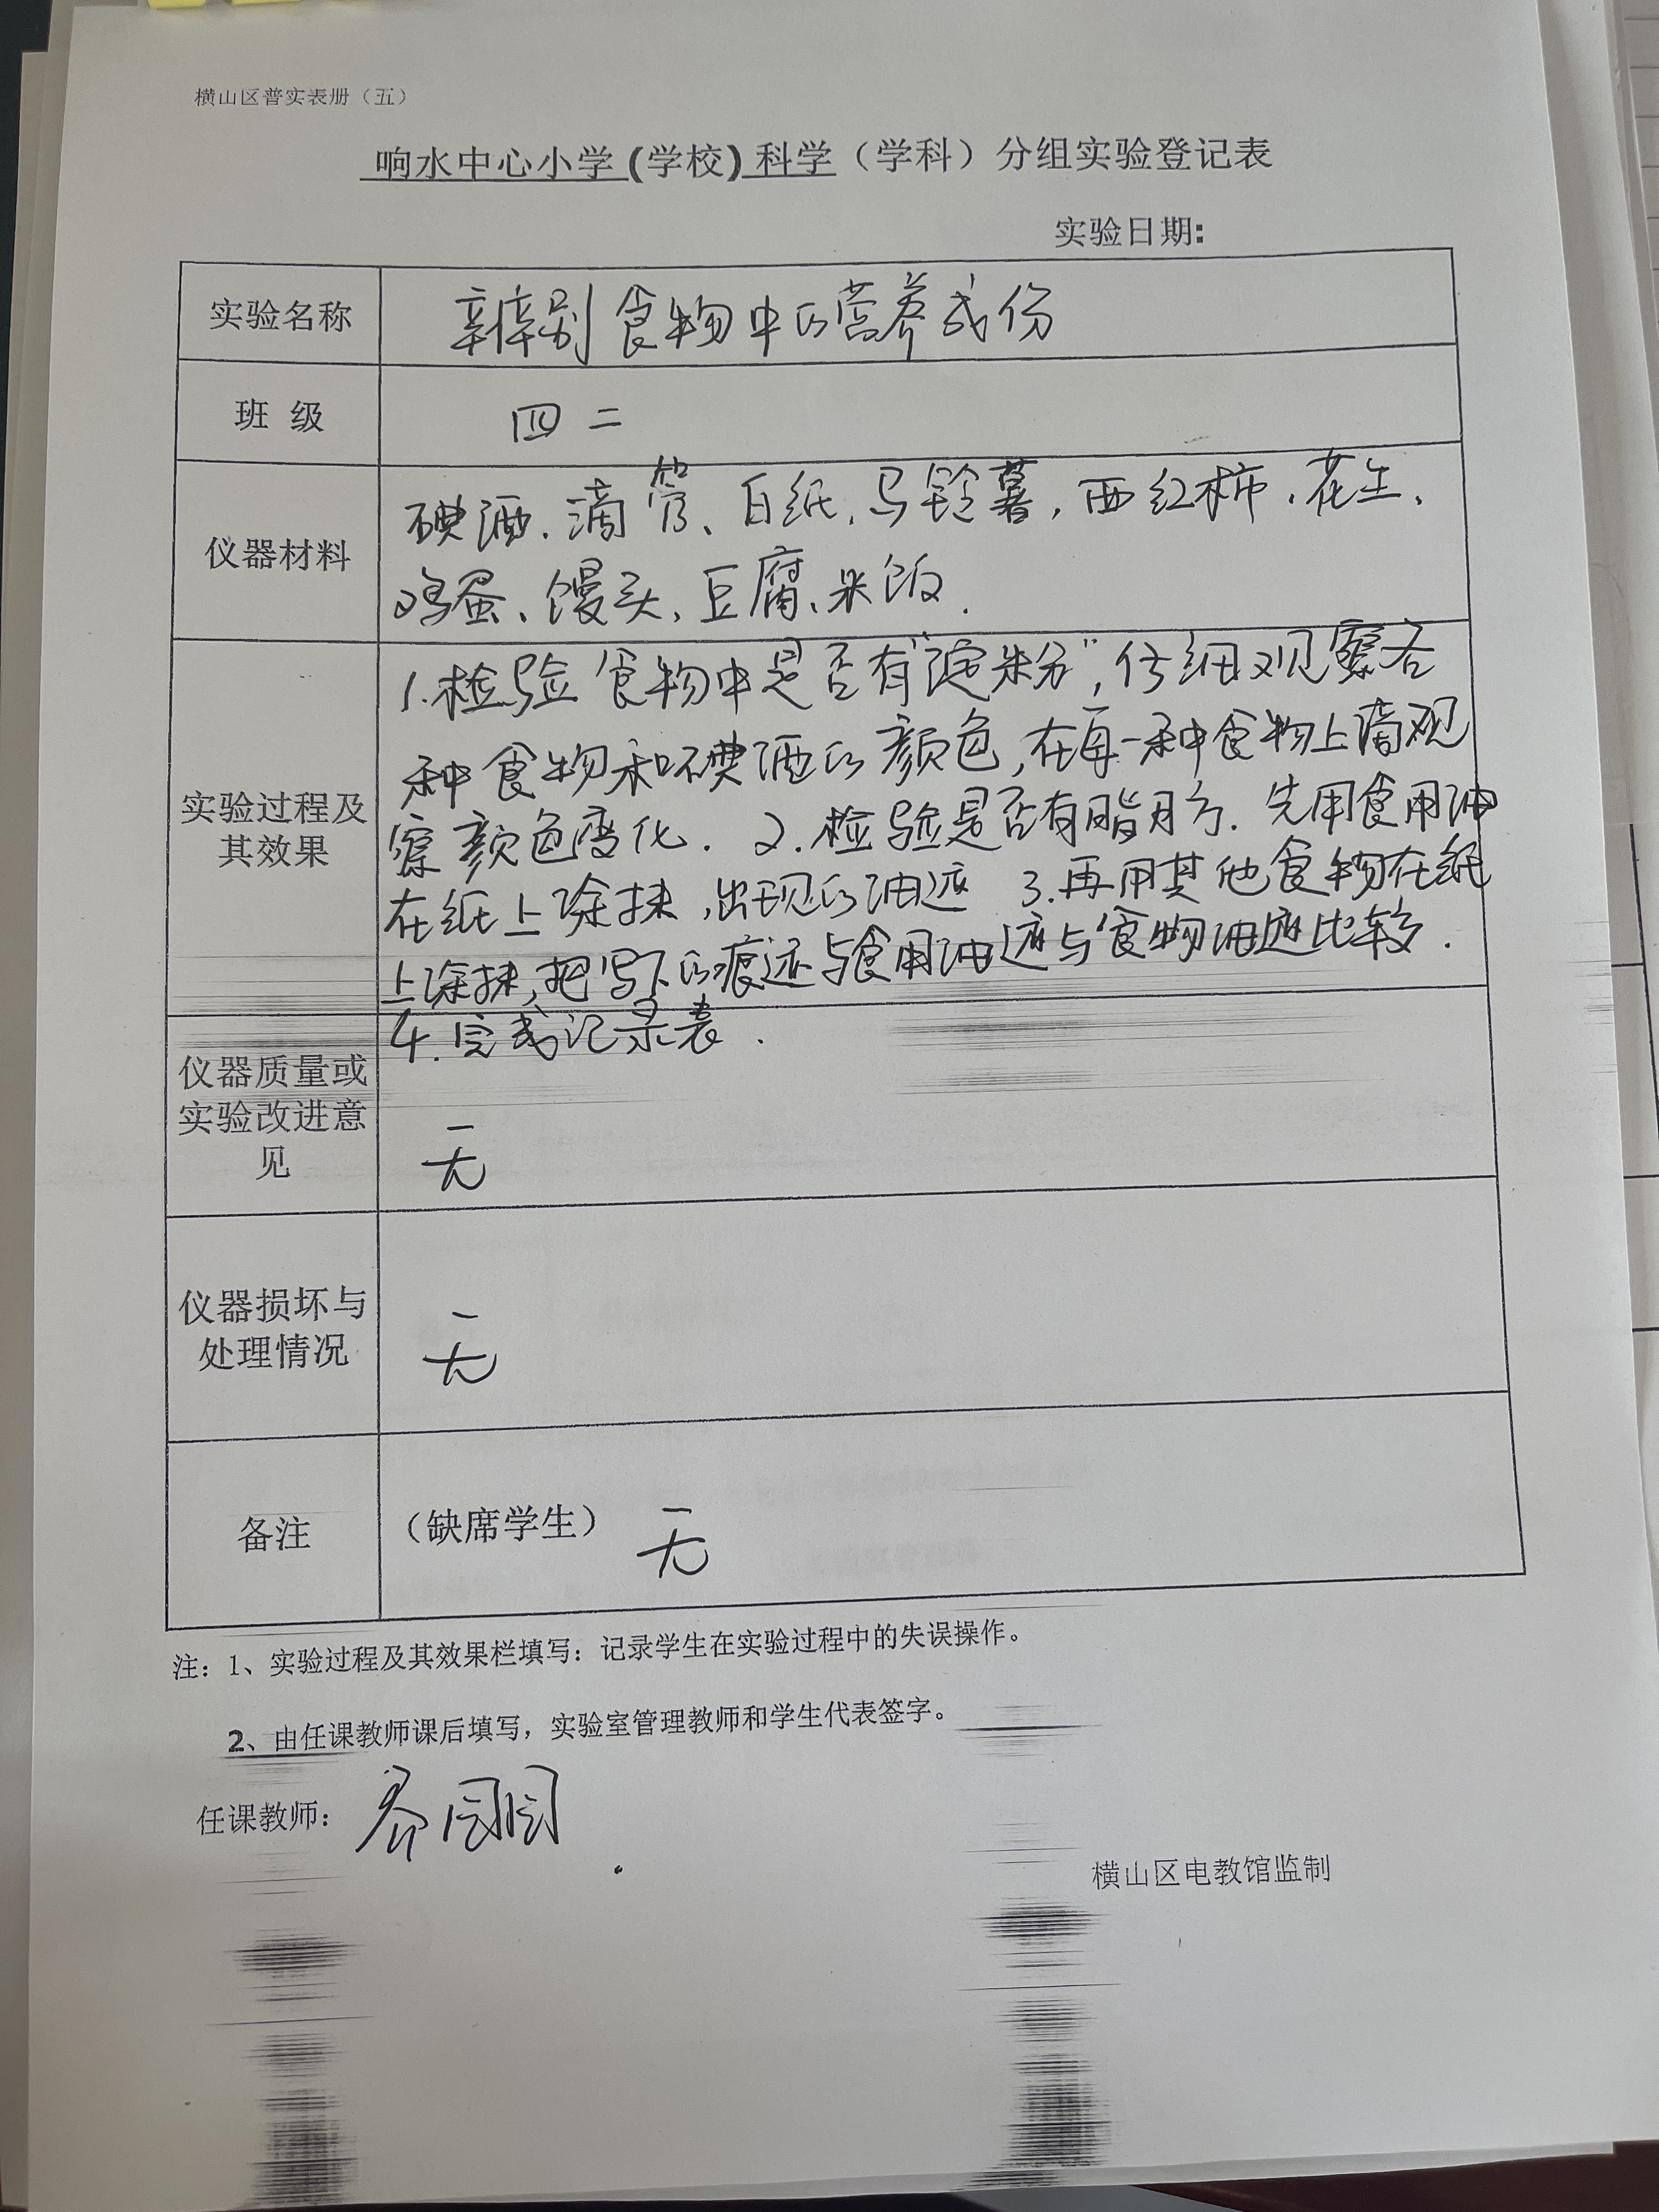 横山区普实表册（五）
响水中心小学 (学校) 科学（学科）分组实验登记表
实验日期:
实验名称
辨别食物中的营养成份
班 级
四 二
仪器材料
碘酒、滴管、白纸、马铃薯，西红柿、花生、
鸡蛋、馒头、豆腐、米饭.
实验过程及
其效果
1.检验食物中是否有"淀粉"，仔细观察各
种食物和碘酒的颜色，在每一种食物上滴观
察颜色变化. 2.检验是否有脂肪. 先用食用油
在纸上涂抹，出现的油迹 3.再用其他食物在纸
上涂抹，把写下的痕迹与食用油迹与食物油迹比较.
4.完成记录表.
仪器质量或
实验改进意
见
无
仪器损坏与
处理情况
无
备注
（缺席学生） 无
注：1、实验过程及其效果栏填写：记录学生在实验过程中的失误操作。
2、由任课教师课后填写，实验室管理教师和学生代表签字。
任课教师：
横山区电教馆监制